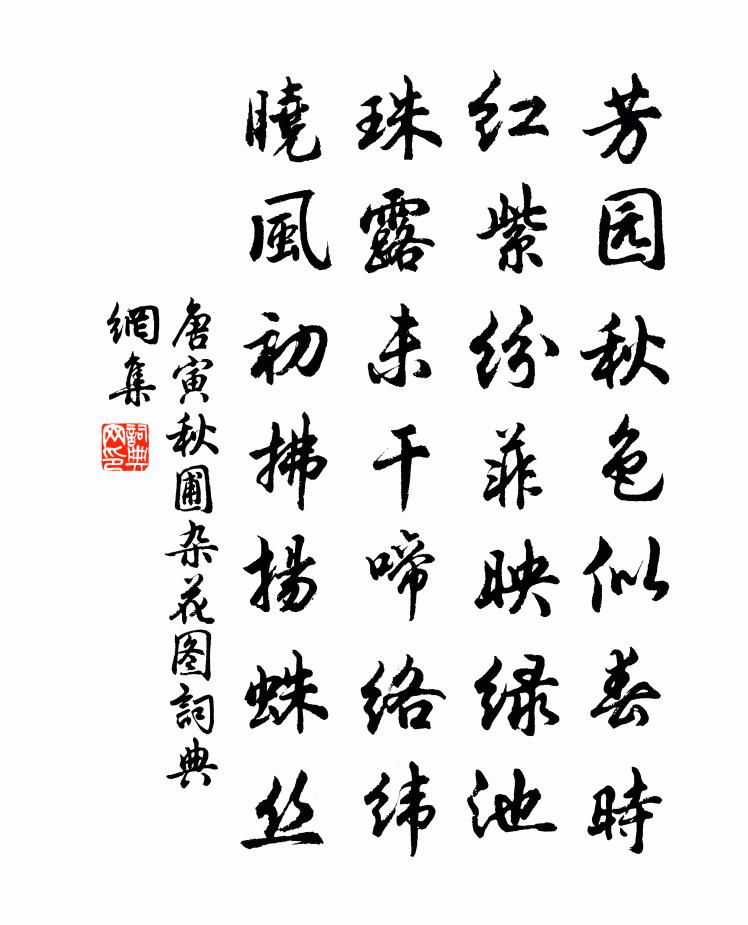 芳园秋色似春時
红紫纷菲映绿池
珠露未干啼络纬
曉風初拂揚蛛丝
唐寅秋圃杂花图詞典
網集
詞典
网印